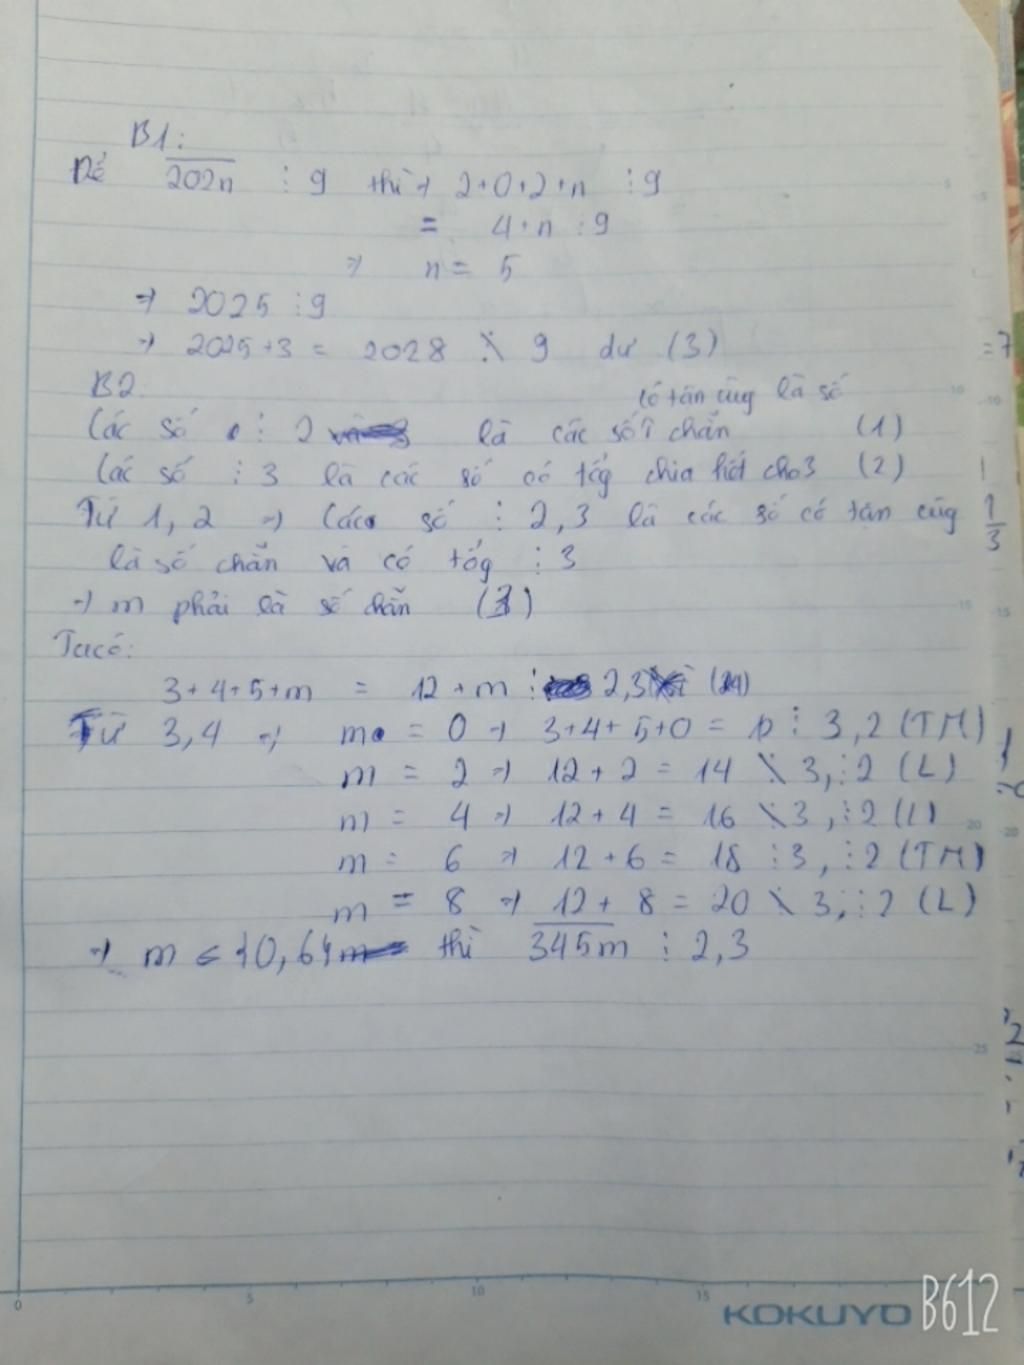 B1:
Để 202n ⋮ 9 thì → 2+0+2+n ⋮ 9
= 4+n ⋮ 9
⇒ n = 5
⇒ 2025 ⋮ 9
⇒ 2025+3 = 2028 ⋮̸ 9 dư (3)
B2.
có tân cùg là số
Các số ⋮ 2 là các số chẵn (1)
Các số ⋮ 3 là các số có tổg chia hết cho 3 (2)
Từ 1, 2 ⇒ Các số ⋮ 2,3 là các số có tân cùg
là số chẵn và có tổg ⋮ 3
⇒ m phải là số chẵn (3)
Ta có:
3+4+5+m = 12+m ⋮ 2,3 (4)
Từ 3,4 ⇒ m = 0 ⇒ 3+4+5+0 = 12 ⋮ 3,2 (TM)
m = 2 ⇒ 12+2 = 14 ⋮̸ 3, ⋮ 2 (L)
m = 4 ⇒ 12+4 = 16 ⋮̸ 3, ⋮ 2 (L)
m = 6 ⇒ 12+6 = 18 ⋮ 3, ⋮ 2 (TM)
m = 8 ⇒ 12+8 = 20 ⋮̸ 3, ⋮ 2 (L)
⇒ m ∈ {0,6} thì 345m ⋮ 2,3
0 5 10 15
KOKUYO B612